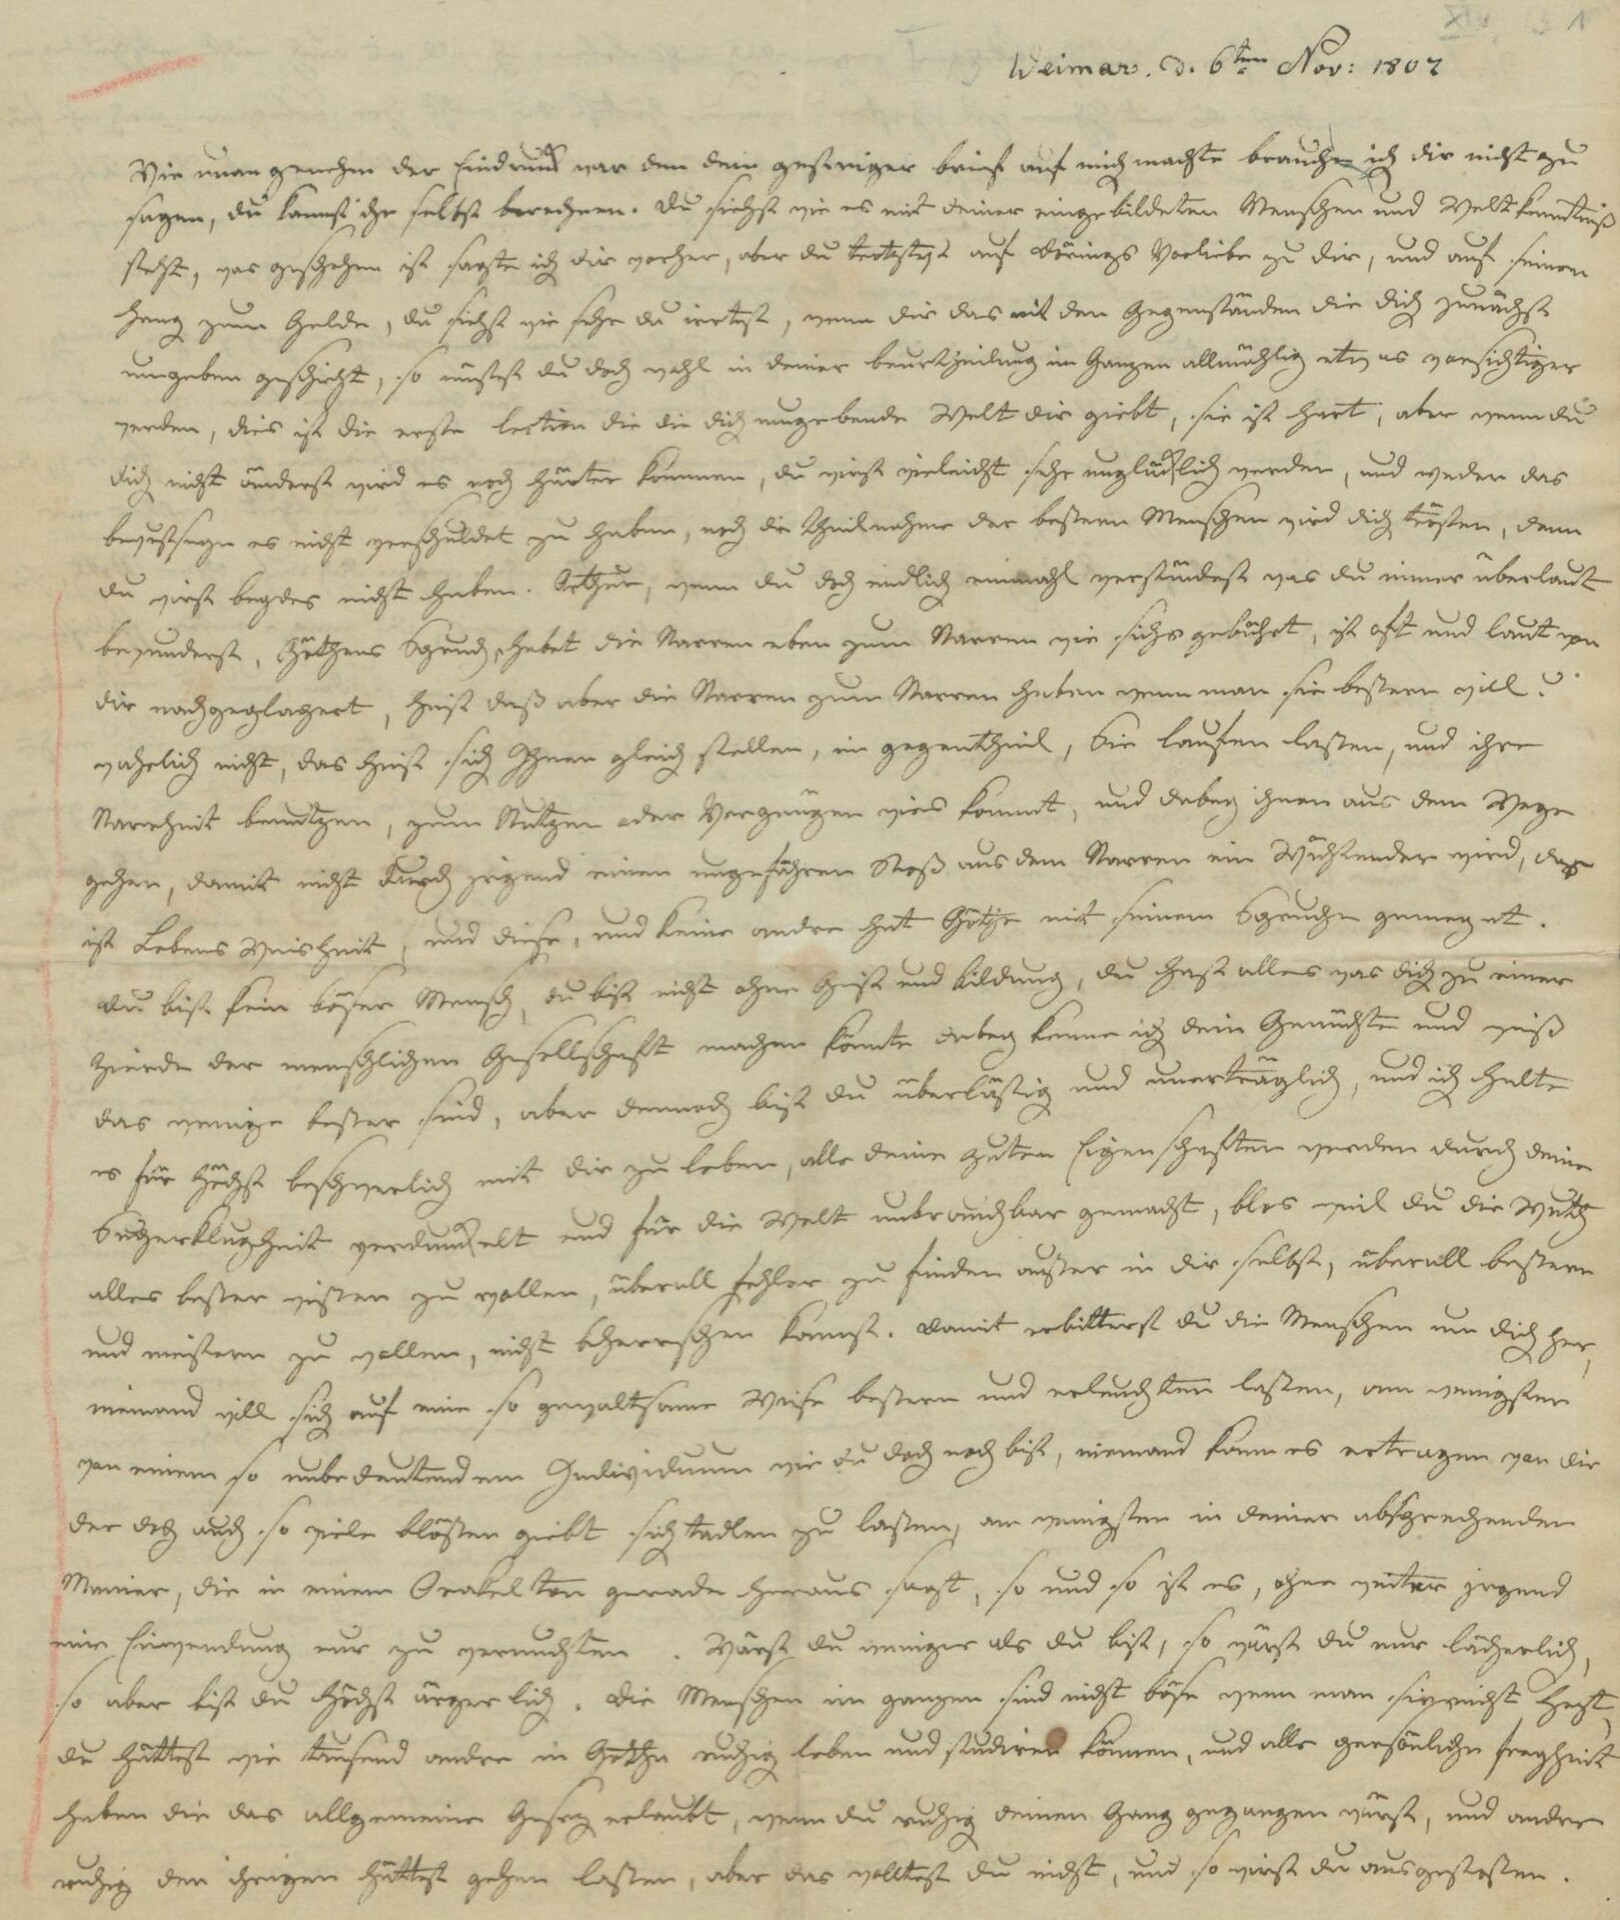 Weimar. d. 6ten Nov: 1807
Wie unangenehm der Eindruck war den dein gestriger brief auf mich machte brauche ich dir nicht zu
sagen, du kannst ihn selbst berechnen. Du siehst wie es mit deiner eingebildeten Menschen und Weltkenntniß
steht, was geschehen ist sagte ich dir vorher, aber du trotztest auf Dörings Vorliebe zu dir, und auf seinen
Hang zum Gelde, du siehst wie sehr du irrtest, wenn dir das mit den Gegenständen die dich zunächst
umgeben geschieht, so müstest du doch wohl in deiner beurtheilung im Ganzen allmählig etwas vorsichtiger
werden, dies ist die erste lection die die dich umgebende Welt dir giebt, sie ist hart, aber wenn du
dich nicht änderst wird es noch härter kommen, du wirst vieleicht sehr unglücklich werden, und weder das
bewustseyn es nicht verschuldet zu haben, noch die theilnahme der bessern Menschen wird dich trösten, denn
du wirst beydes nicht haben. Arthur, wenn du doch endlich einmahl verständest was du immer überlaut
bewunderst, Göthens Spruch, habet die Narren eben zum Narren wie sichs gebührt, ist oft und laut von
dir nachgeplappert, heist daß aber die Narren zum Narren haben wenn man sie bessern will?
wahrlich nicht, das heist sich Ihnen gleich stellen, im gegentheil, Sie laufen lassen, und ihre
Narrheit benutzen, zum Nutzen oder Vergnügen wies kommt, und dabey ihnen aus dem Wege
gehen, damit nicht durch irgend einen ungefähren Stoß aus dem Narren ein Wüthender wird, das
ist Lebens Weisheit, und diese, und keine andre hat Göthe mit seinem Spruche gemeynt.
Du bist kein böser Mensch, du bist nicht ohne Geist und bildung, du hast alles was dich zu einer
Zierde der menschlichen Gesellschaft machen könnte dabey kenne ich dein Gemüthe und weiß
das wenige besser sind, aber dennoch bist du überlästig und unerträglich, und ich halte
es für höchst beschwerlich mit dir zu leben, alle deine guten Eigenschaften werden durch deine
Superklugheit verdunckelt und für die Welt unbrauchbar gemacht, blos weil du die Wuth
alles besser wissen zu wollen, überall Fehler zu finden ausser in dir selbst, überall bessern
und meistern zu wollen, nicht beherrschen kannst. damit erbitterst du die Menschen um dich her,
niemand will sich auf eine so gewaltsame Weise bessern und erleuchten lassen, am wenigsten
von einem so unbedeutendem Individuum wie du doch noch bist, niemand kann es ertragen von dir
der doch auch so viele blössen giebt sich tadlen zu lassen, am wenigsten in deiner absprechenden
Manier, die in einem Orakel ton gerade heraus sagt, so und so ist es, ohne weiter irgend
eine Einwendung nur zu vermuthen. Wärst du weniger als du bist, so wärst du nur lächerlich,
so aber bist du höchst ärgerlich. Die Menschen im ganzen sind nicht böse wenn man sie nicht hezt,
du hättest wie tausend andre in Gotha ruhig leben und studiren können, und alle persönliche freyheit
haben die das allgemeine Gesez erlaubt, wenn du ruhig deinen Gang gegangen wärst, und andre
ruhig den ihrigen hättest gehen lassen, aber das wolltest du nicht, und so wirst du ausgestossen.